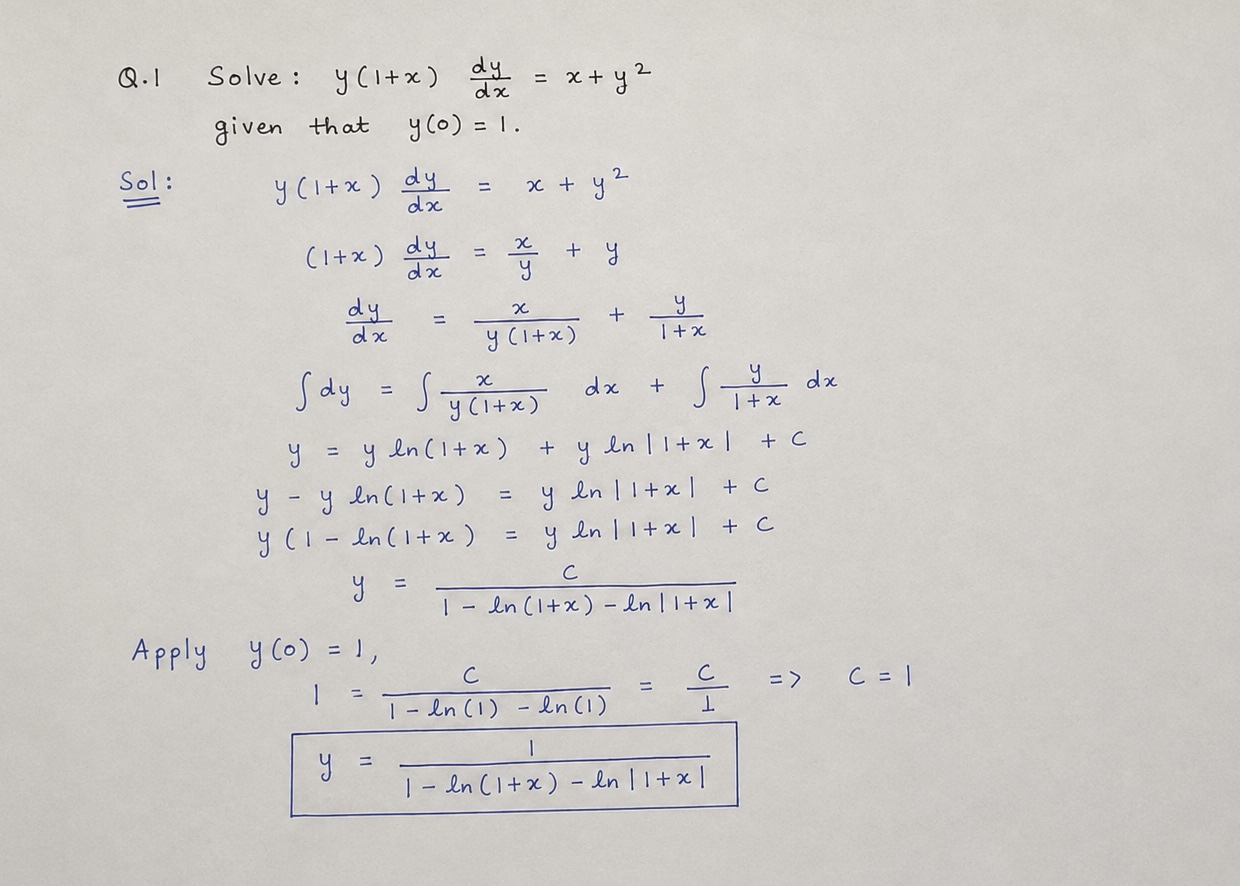 Q.1 Solve : y(1+x) dy/dx = x + y²
given that y(0) = 1.
Sol : y(1+x) dy/dx = x + y²
(1+x) dy/dx = x/y + y
dy/dx = x/(y(1+x)) + y/(1+x)
∫ dy = ∫ x/(y(1+x)) dx + ∫ y/(1+x) dx
y = y ln(1+x) + y ln|1+x| + C
y - y ln(1+x) = y ln|1+x| + C
y (1 - ln(1+x) = y ln|1+x| + C
y = C/(1 - ln(1+x) - ln|1+x|)
Apply y(0) = 1,
1 = C/(1 - ln(1) - ln(1)) = C/1 => C = 1
y = 1/(1 - ln(1+x) - ln|1+x|)